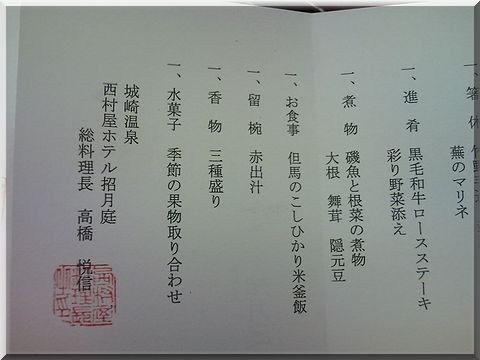 一、箸 休
蕪のマリネ
一、進 肴 黒毛和牛ロースステーキ
彩り野菜添え
一、煮 物 磯魚と根菜の煮物
大根 舞茸 隠元豆
一、お食事 但馬のこしひかり米釜飯
一、留 椀 赤出汁
一、香 物 三種盛り
一、水菓子 季節の果物取り合わせ
城崎温泉
西村屋ホテル招月庭
総料理長 高橋 悦信